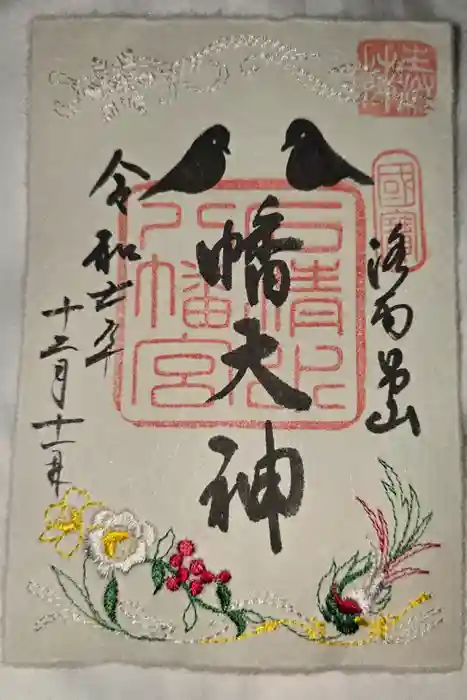 國寳
洛南男山
八幡大神
石清水
八幡宮
令和七年
十二月十一日